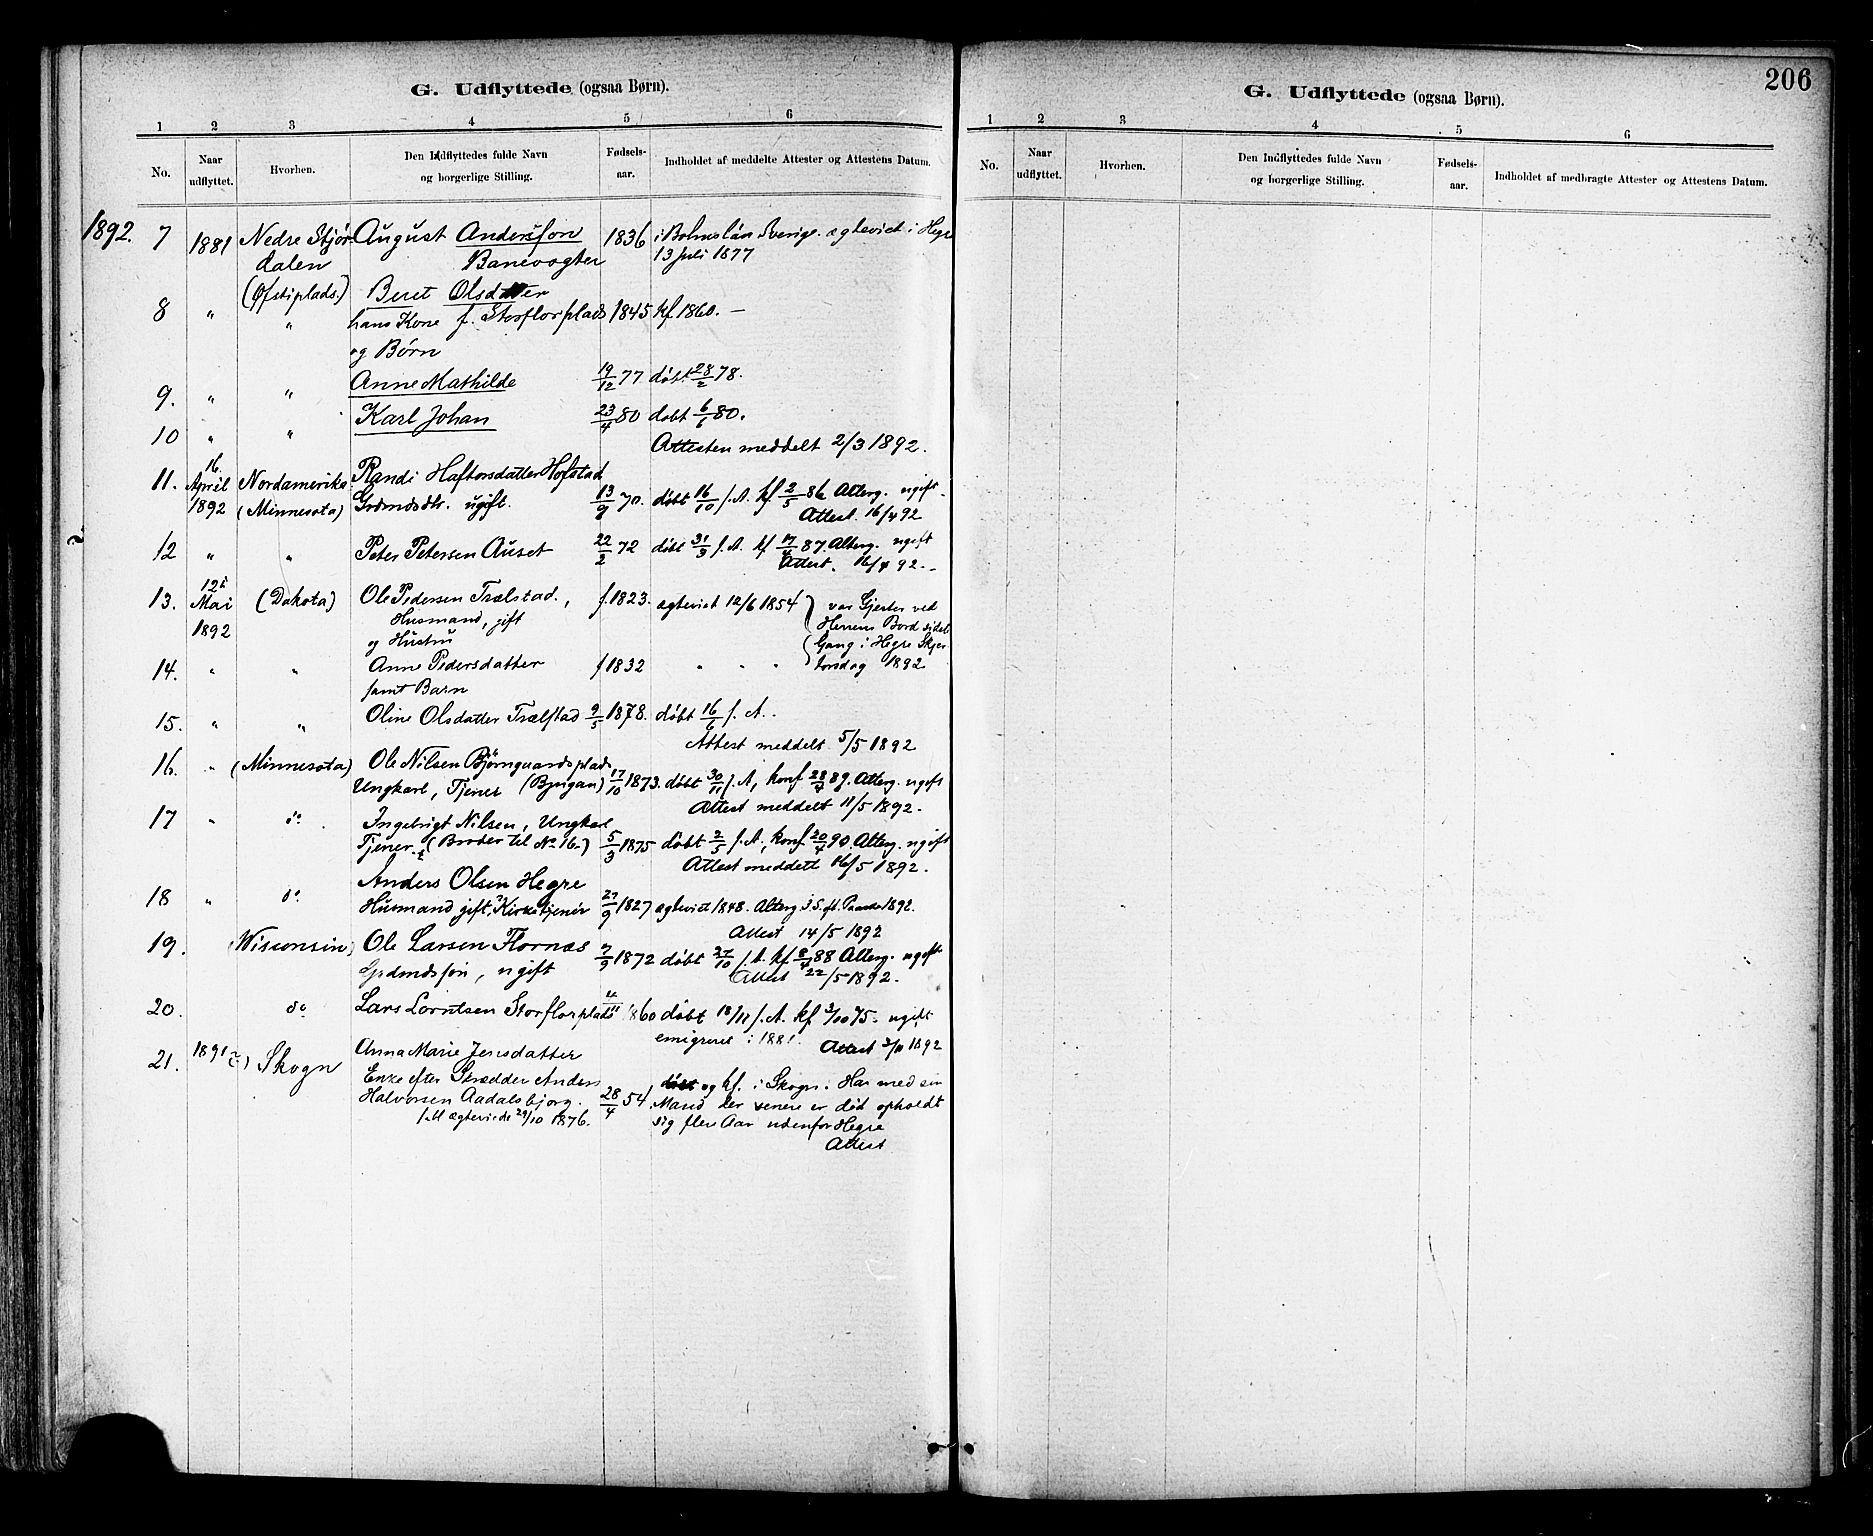 G. Udflyttede (ogsaa Børn).
1 2 3 4 5 6
No. Naar udflyttet. Hvorhen. Den Indflyttedes fulde Navn og borgerlige Stilling. Fødsels-aar. Indholdet af meddelte Attester og Attestens Datum.
1892. 7 1881 Nedre Stjør August Andersson 1836 i Sverige. ægteviet i Hegre
dalen Banevogter 13 Juli 1877
(Øfstiplads.) Beret Olsdatter
8 " " hans Kone f. Storflorplads 1845 kf. 1860. –
og Børn
9. " " Anne Mathilde 19/12 77 døbt 28/2 78.
10 " " Karl Johan 23/4 80 døbt 6/6 80.
Attesten meddelt 2/3 1892.
11. 16. April 1892 Nordamerika Randi Haftorsdatter Hofstad
(Minnesota) Grdmdsdtr. ugift. 13/9 70. døbt 16/10 s. A. kf 2/5 86 Alterg. ugift.
Attest. 16/4 92
12 " " Peter Petersen Auset 22/2 72 døbt 31/3 s. A. kf 17/4 87. Alterg. ugift
Attest. 16/4 92.
13. 12te Mai 1892 (Dakota) Ole Pedersen Trælstad, f. 1823. ægteviet 12/6 1854 var Gjester ved
Husmand, gift Herrens Bord sidste
og Hustru Gang i Hegre Skjær
14. " " Anne Pedersdatter f 1832 " " " torsdag 1892
samt Barn
15. " " Oline Olsdatter Trælstad 9/5 1878. døbt 16/6 s. A.
Attest meddelt 5/5 1892
16. " (Minnesota) Ole Nilsen Bjørngaardsplads
Ungkarl, Tjener (Bjugan) 17/10 1873. døbt 30/11 s. A, konf 28/4 89. Alterg. ugift
Attest meddelt 11/5 1892.
17 " do. Ingebrigt Nilsen, Ungkarl
Tjener. (Broder til No 16.) 5/3 1875 døbt 2/5 s. A., konf 20/4 90. Alterg. ugift
Attest meddelt 16/5 1892.
18 " do Anders Olsen Hegre
Husmand gift, Kirketjener 27/9 1827 ægteviet 1848. Alterg. 1892.
Attest 14/5 1892
19. (Wisconsin) Ole Larsen Flornæs 7/9 1872 døbt 27/10 s. A. kf. 8/4 88 Alterg. ugift
Grdmdssøn, ugift Attest 22/5 1892.
20. do Lars Lorntsen Storflorplads 4/11 1860 døbt 18/11 s. A. kf 3/10 75. ugift
emigreret i 1881. Attest 1892
21. 1891 Skogn Anna Marie Jensdatter
Enke efter Skrædder Anders døbt og kf. i Skogn. Har med sin
Halvorsen Aadalsbjørg. 28/4 54. Mand der senere er død opholdt
ægteviede 29/10 1876. sig flere Aar udenfor Hegre
Attest
206
G. Udflyttede (ogsaa Børn).
1 2 3 4 5 6
No. Naar udflyttet. Hvorhen. Den Indflyttedes fulde Navn og borgerlige Stilling. Fødsels-aar. Indholdet af medbragte Attester og Attestens Datum.